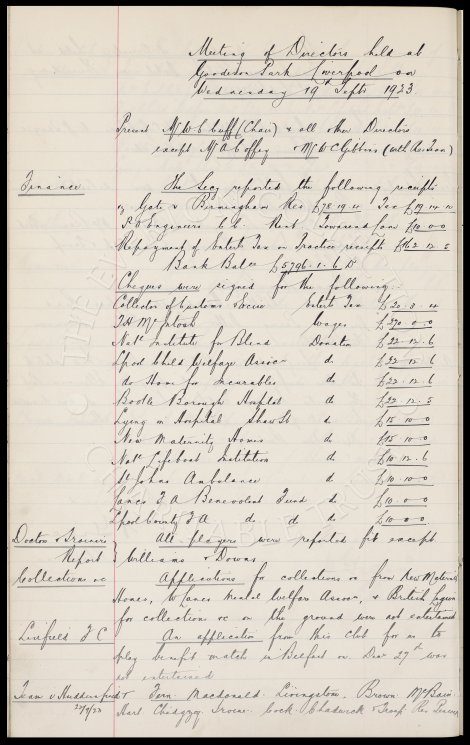 Meeting of Directors held at
Goodison Park Liverpool on
Wednesday 19th Septr 1923
Present Mr W C Cuff (Chair) & all other Directors
except Mr A Coffey & Mr W C Gibbins (with Res Team)
Finance
The Secy reported the following receipts
Gate v Birmingham Res £78.19.11 Tax £19.14.10
P O Engineers c.c. Rent Townsend Lane £10.0.0
Repayment of Entert Tax on Practice receipts £162.12.5
Bank Balce £5796.1.6 Dr
Cheques were signed for the following:-
Collector of Customs & Excise Entert Tax £20.3.4
T H McIntosh Wages £270.0.0
Natl Institute for Blind Donation £22.12.6
Lpool Child Welfare Assocn do £22.12.6
do Home for Incurables d £22.12.6
Bootle Borough Hosptal d £22.12.5
Lying in Hospital Shaw St d £15.10.0
New Maternity Homes d £15.10.0
Natl Lifeboat Institution d £10.12.6
St Johns Ambulance d £10.10.0
Lancs F A Benevolent Fund d £10.0.0
Lpool County F A do do d £10.0.0
Doctor & Trainers
Report
All players were reported fit except
Williams & Downs
Collections &c
Applications for collections &c from New Maternity
Homes, W Lancs Mental Welfare Assocn, & British Legion
for collections &c on the ground were not entertained
Linfield F C
An application from this club for us to
play benefit match in Belfast on Decr 27th was
not entertained
Team v Huddersfield
22/9/23
Fern Macdonald Livingstone Brown McBain
Hart Chedgzoy Irvine Cock Chadwick & Troup Res